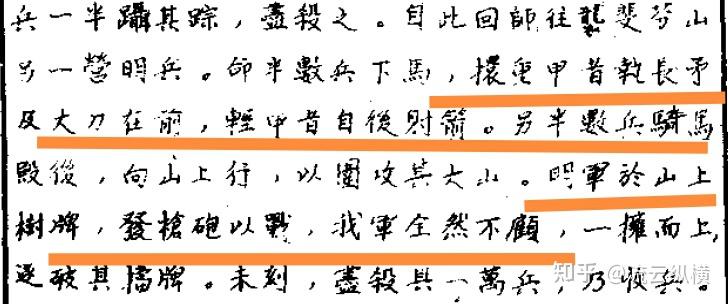 兵一半躡其踪，盡殺之。自此回師往襲斐芬山
另一營明兵。命半數兵下馬，擐重甲者執長矛
及大刀在前，輕甲者自後射箭。另半數兵騎馬
殿後，向山上行，以圍攻其大山。明軍於山上
樹牌，發槍砲以戰，我軍全然不顧，一擁而上，
遂破其擋牌。未刻，盡殺其一萬兵，乃收兵。
知乎 云纵横